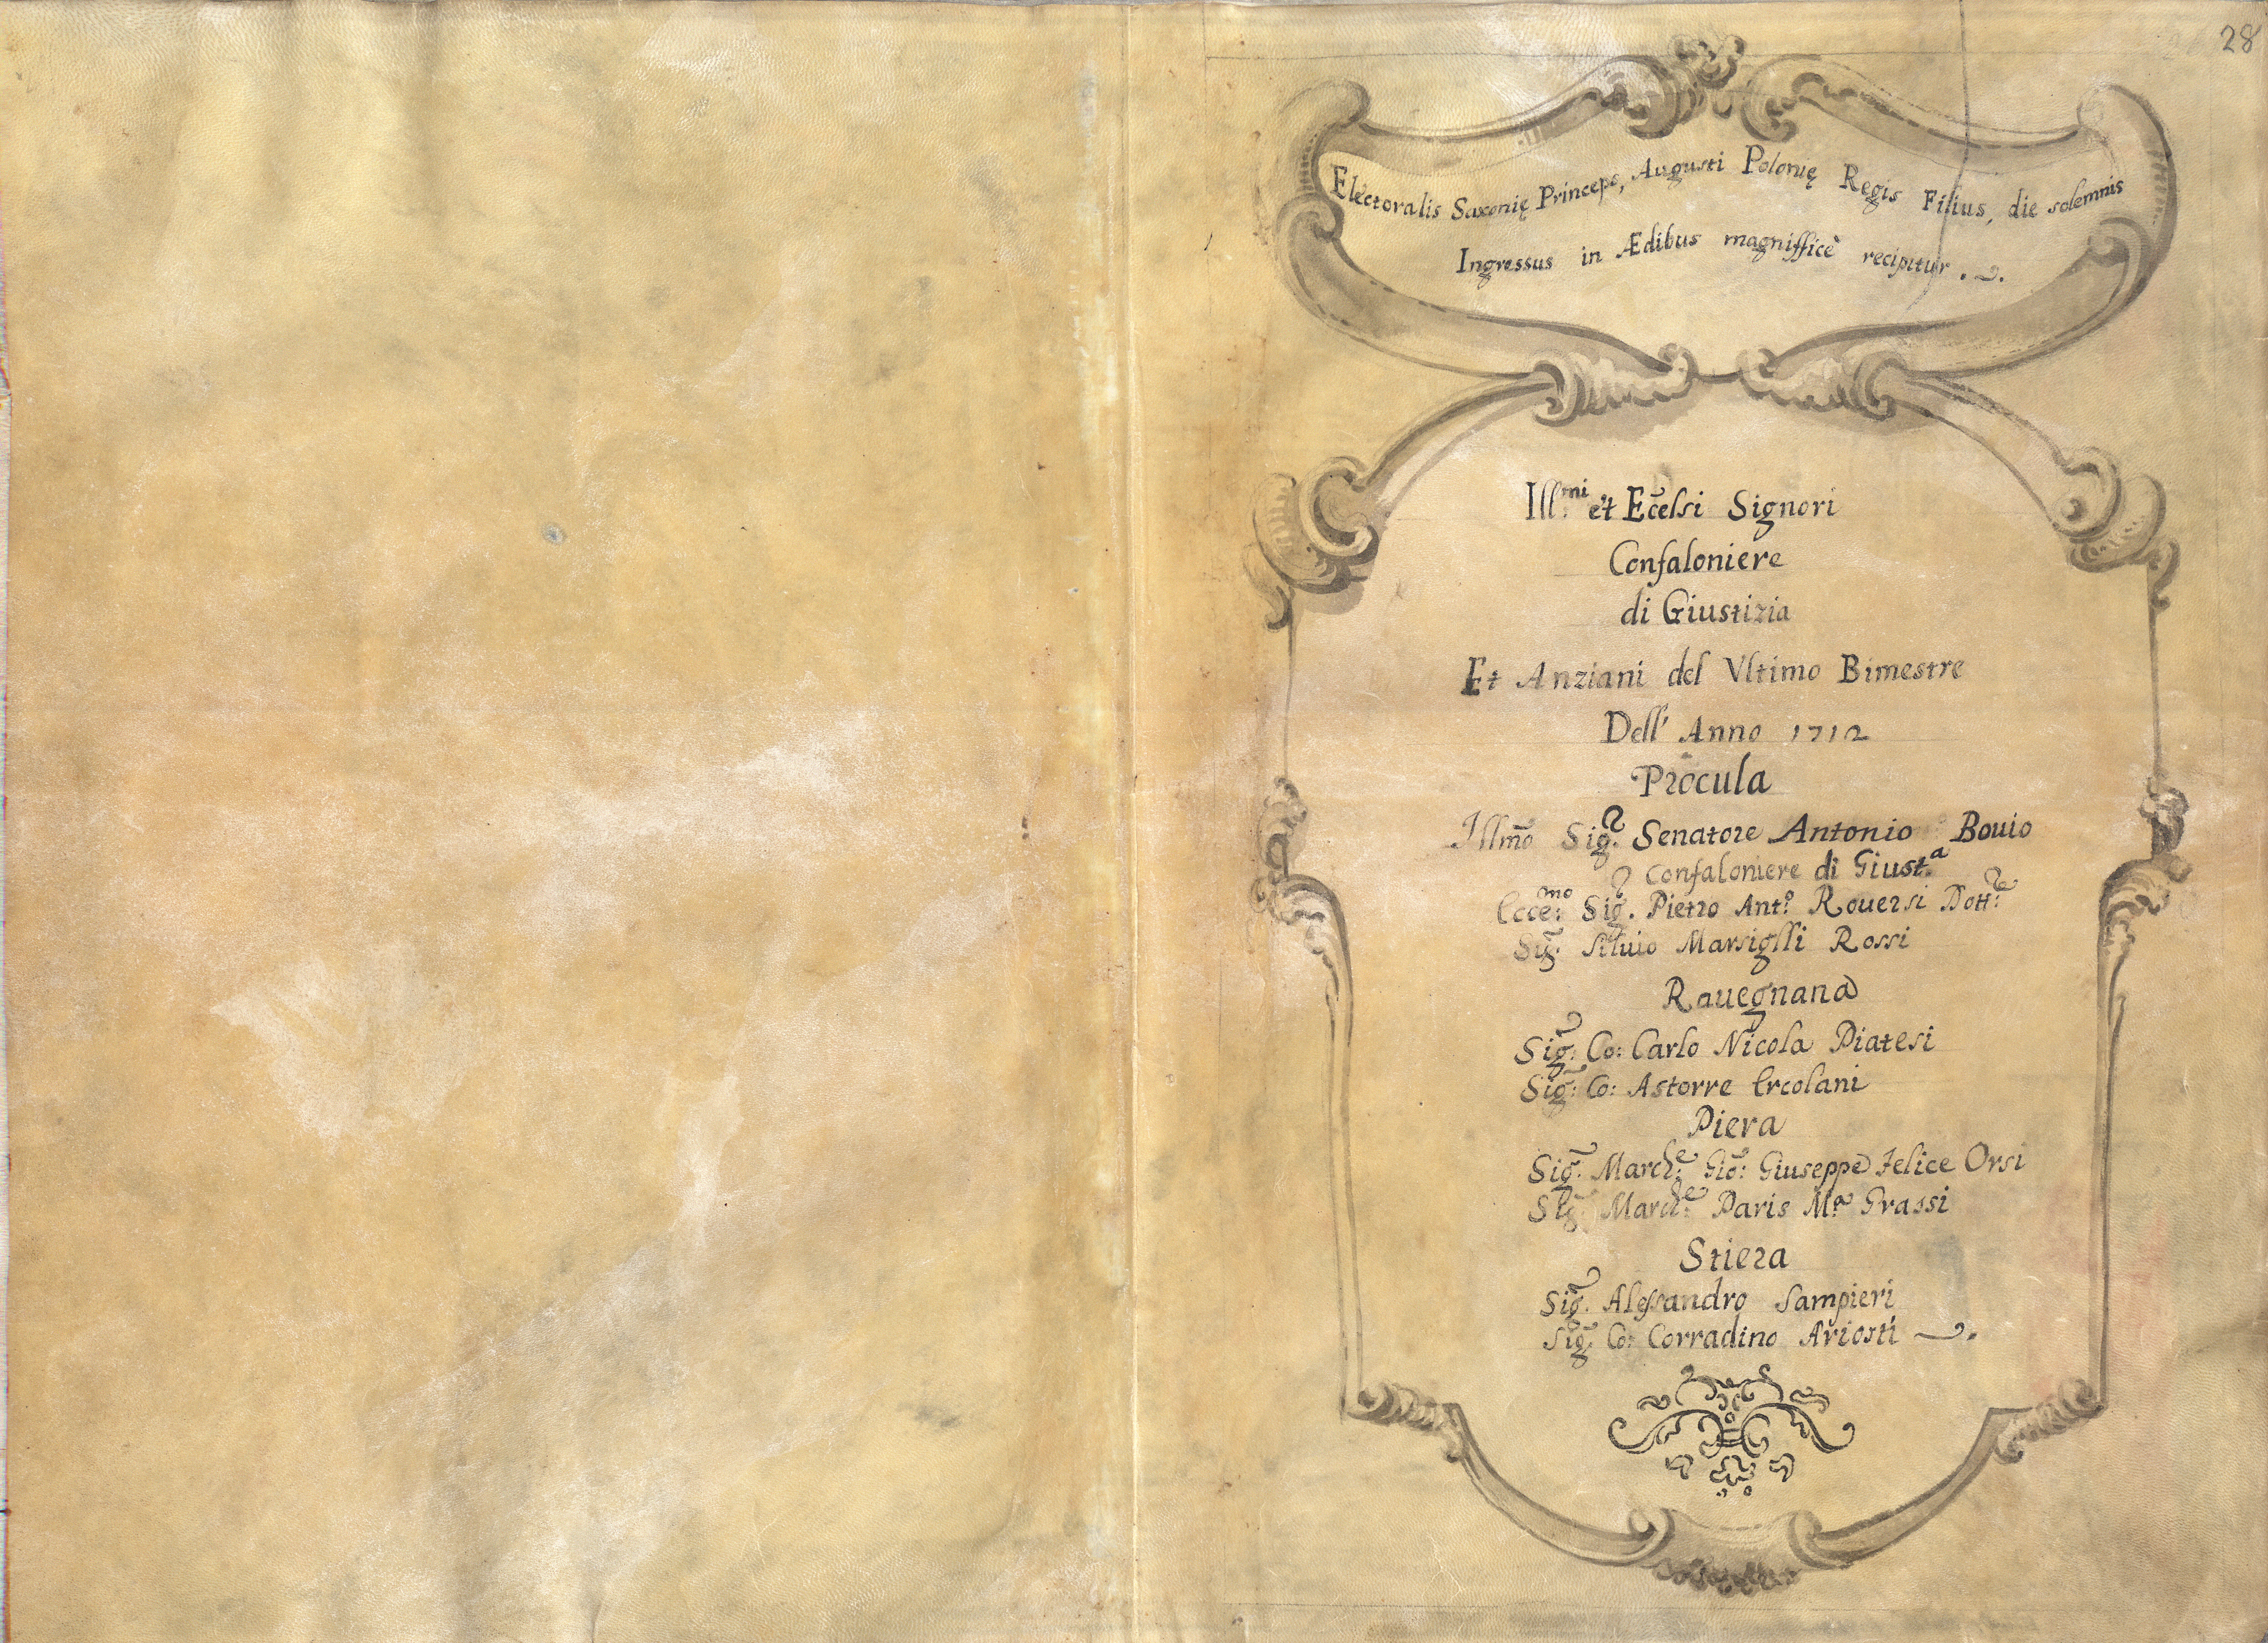 28
Electoralis Saxonię Princeps, Augusti Polonię Regis Filius, die solemnis
Ingressus in Ædibus magnifficè recipitur.
Ill.mi et Ecc̄elsi Signori
Confaloniere
di Giustizia
Et Anziani del Vltimo Bimestre
Dell' Anno 1712
Procula
Illm̄o Sig.r Senatore Antonio Bouio
Confaloniere di Giust.a
Ecce:mo Sig. Pietro Ant.o Rouersi Dott:re
Sig: Siluio Marsiglli Rossi
Rauegnana
Sig:r Co: Carlo Nicola Piatesi
Sig: Co: Astorre Ercolani
Piera
Sig: March:e Gio: Giuseppe Felice Orsi
Sig: March:e Paris M.a Grassi
Stiera
Sig.r Alessandro Sampieri
Sig: Co: Corradino Ariosti